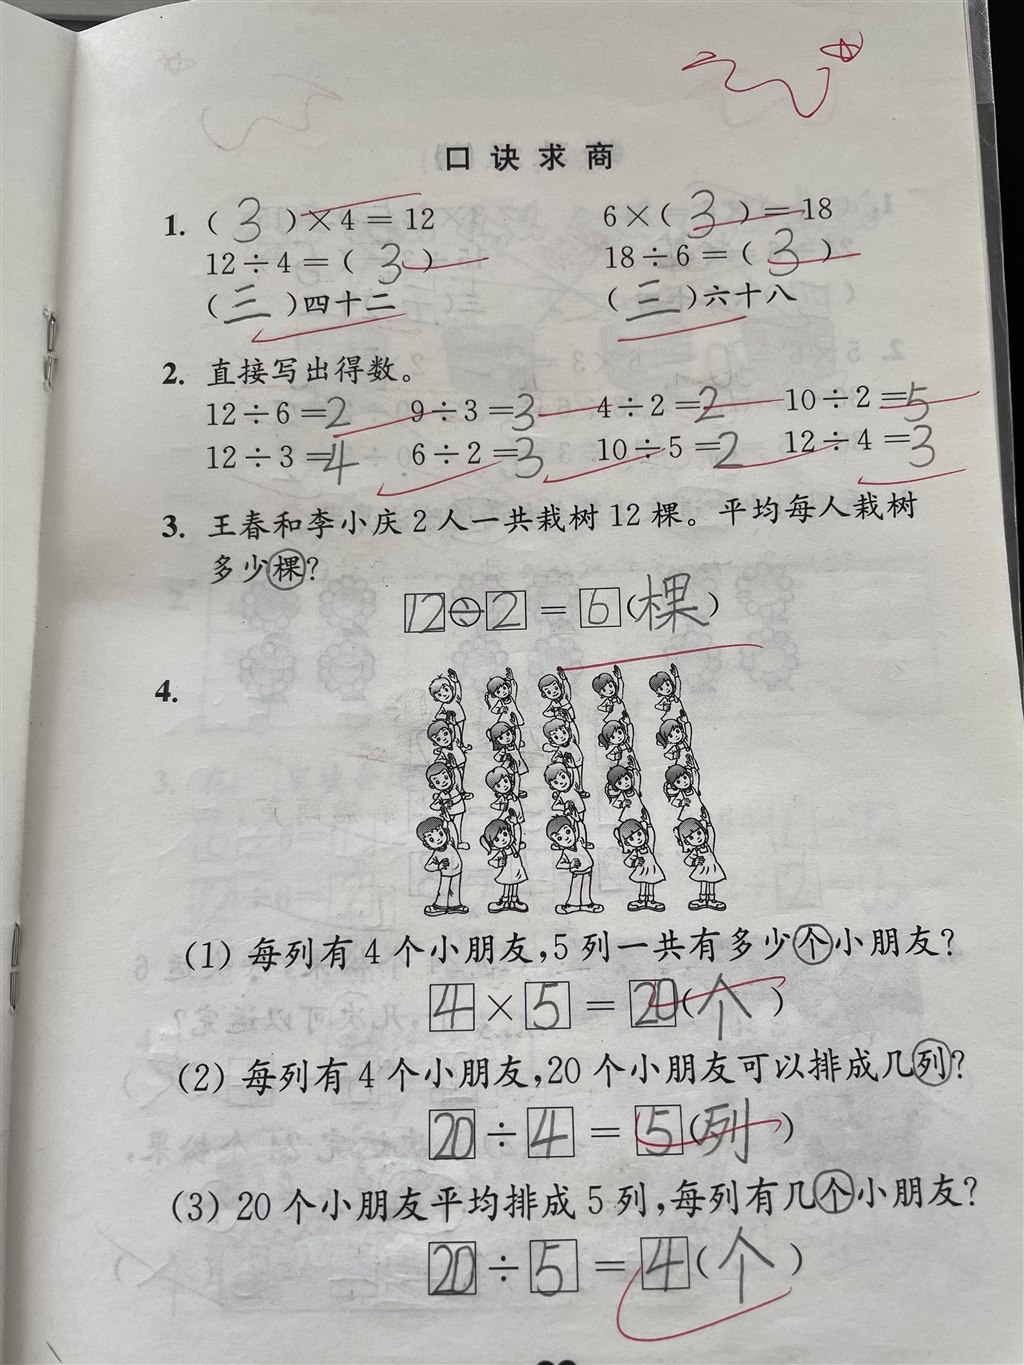 口诀求商
1. ( 3 )×4=12 6×( 3 )=18
12÷4=( 3 ) 18÷6=( 3 )
( 三 )四十二 ( 三 )六十八
2. 直接写出得数。
12÷6=2 9÷3=3 4÷2=2 10÷2=5
12÷3=4 6÷2=3 10÷5=2 12÷4=3
3. 王春和李小庆2人一共栽树12棵。平均每人栽树
多少棵?
12÷2=6(棵)
4.
(1) 每列有4个小朋友,5列一共有多少个小朋友?
4×5=20(个)
(2) 每列有4个小朋友,20个小朋友可以排成几列?
20÷4=5(列)
(3) 20个小朋友平均排成5列,每列有几个小朋友?
20÷5=4(个)